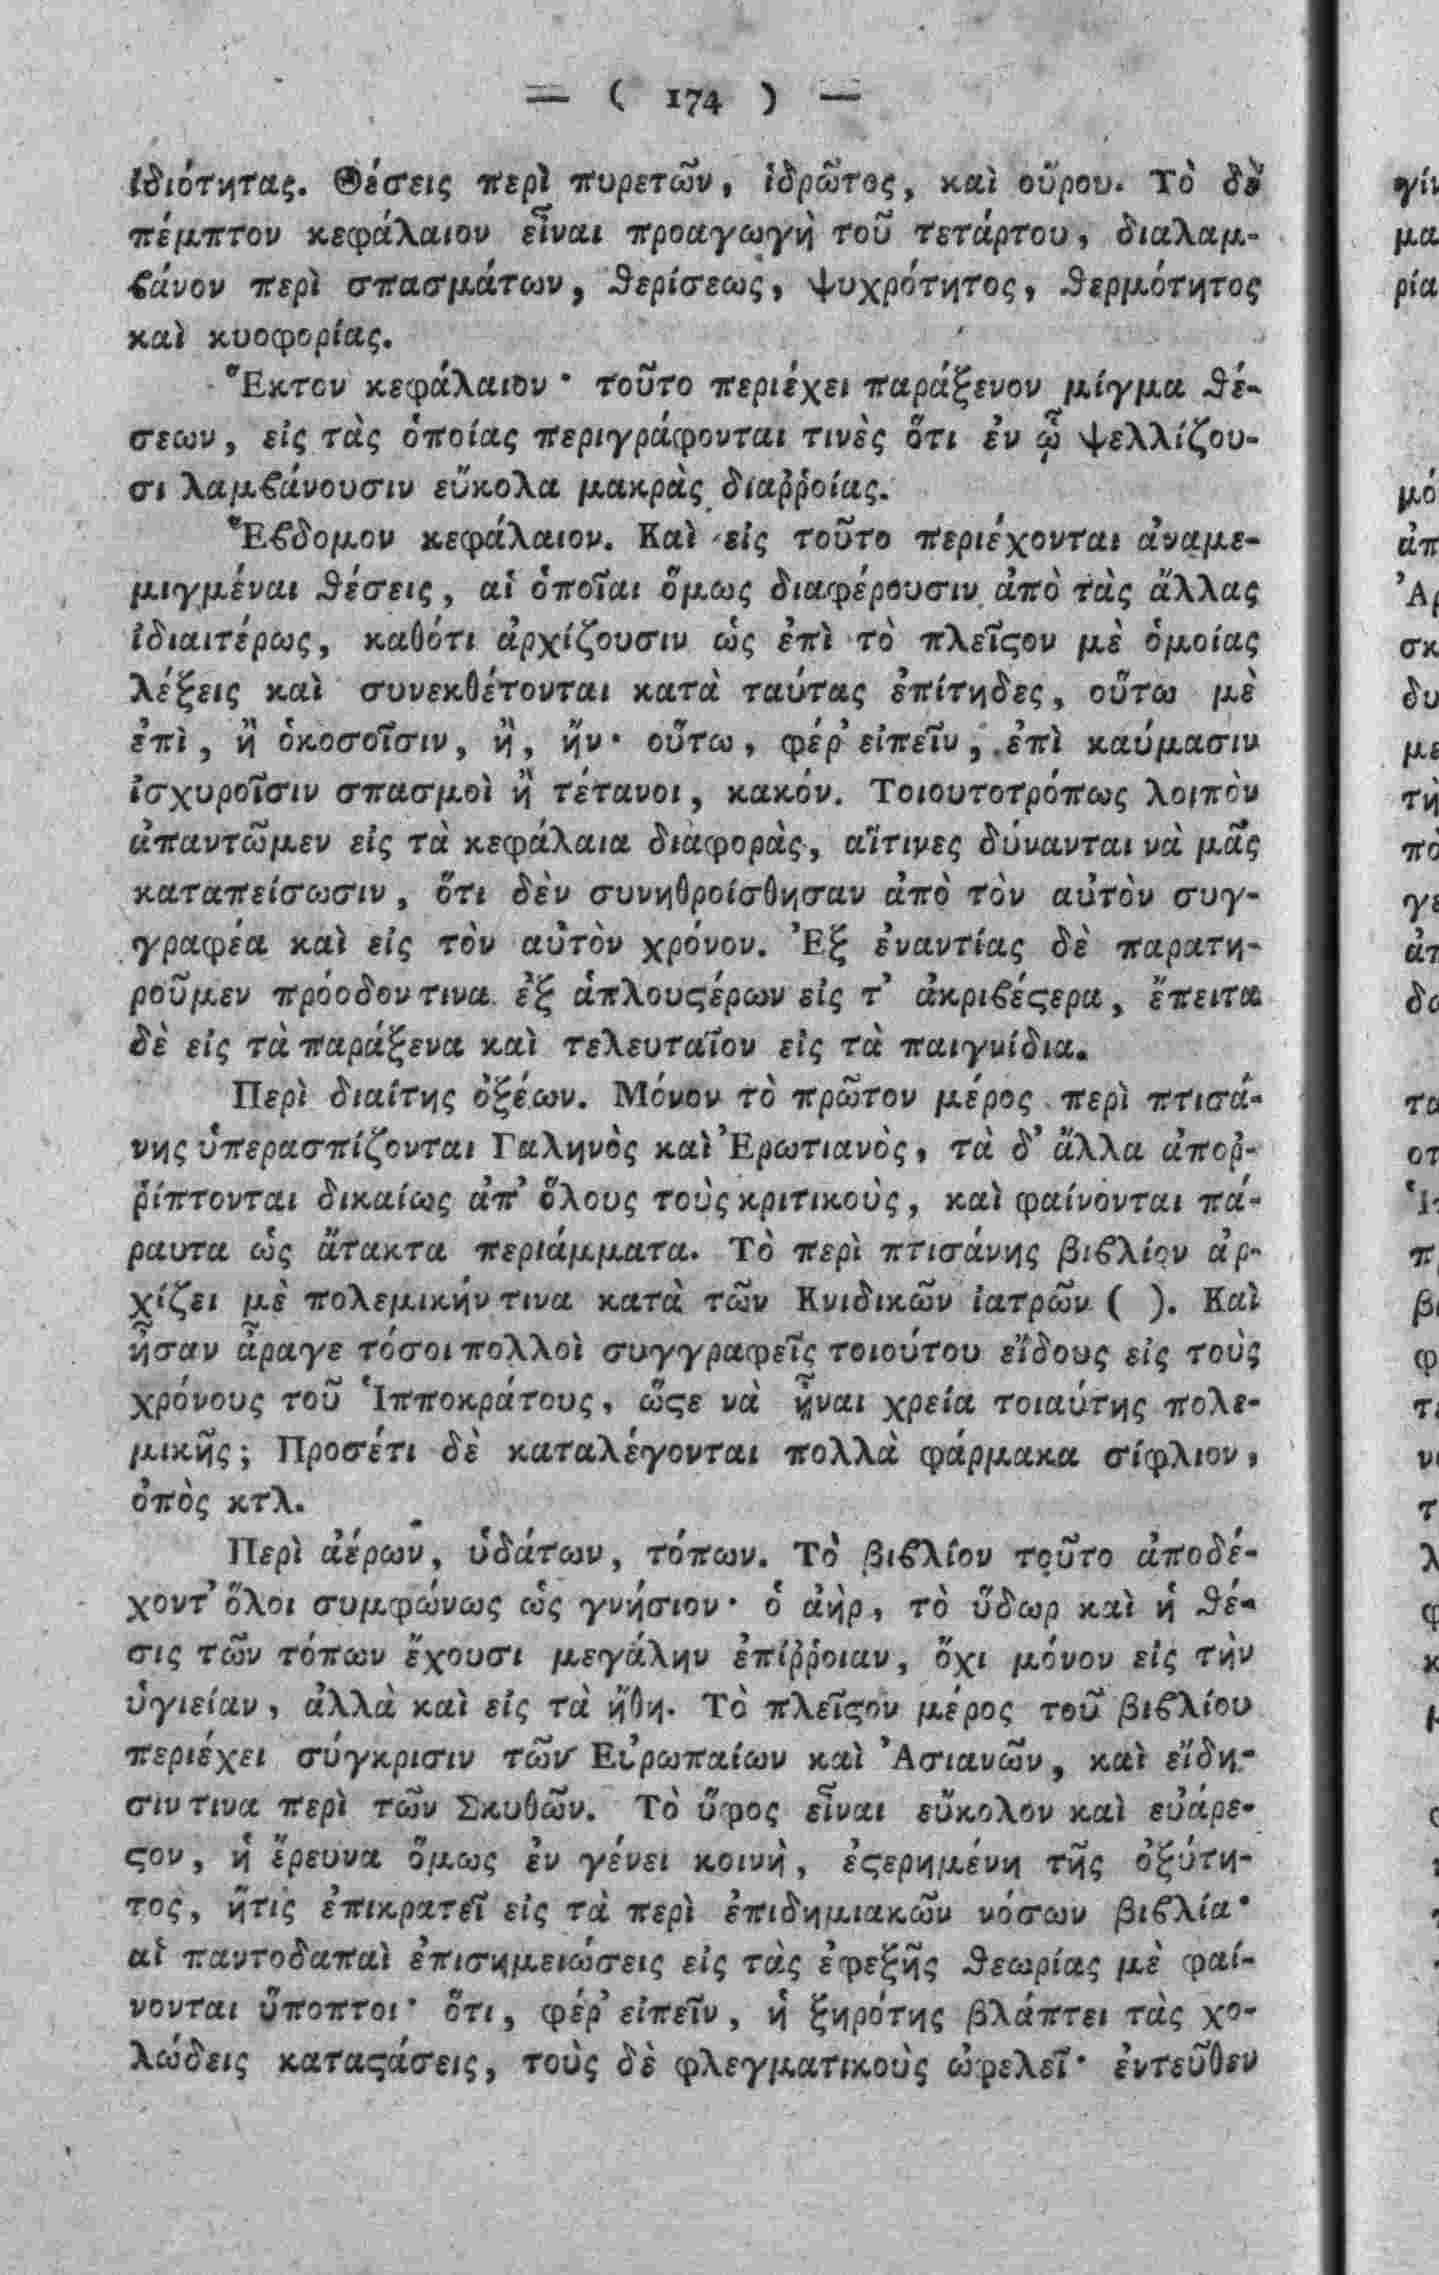 — ( 174 ) —
ἰδιότητας. Θέσεις περὶ πυρετῶν, ἱδρῶτος, καὶ οὔρου. Τὸ δὲ
πέμπτον κεφάλαιον εἶναι προαγωγὴ τοῦ τετάρτου, διαλαμ-
ϐάνον περὶ σπασμάτων, ϑερίσεως, ψυχρότητος, ϑερμότητος
καὶ κυοφορίας.
Ἕκτον κεφάλαιον· τοῦτο περιέχει παράξενον μίγμα ϑέ-
σεων, εἰς τὰς ὁποίας περιγράφονται τινὲς ὅτι ἐν ᾧ ψελλίζου-
σι λαμϐάνουσιν εὔκολα μακρὰς διαῤῥοίας.
Ἕϐδομον κεφάλαιον. Καὶ εἰς τοῦτο περιέχονται ἀναμε-
μιγμέναι ϑέσεις, αἱ ὁποῖαι ὅμως διαφέρουσιν ἀπὸ τὰς ἄλλας
ἰδιαιτέρως, καθότι ἀρχίζουσιν ὡς ἐπὶ τὸ πλεῖϛον μὲ ὁμοίας
λέξεις καὶ συνεκθέτονται κατὰ ταύτας ἐπίτηδες, οὕτω μὲ
ἐπὶ, ἢ ὁκοσοῖσιν, ἢ, ἤν· οὕτω, φέρ' εἰπεῖν, ἐπὶ καύμασιν
ἰσχυροῖσιν σπασμοὶ ἢ τέτανοι, κακόν. Τοιουτοτρόπως λοιπὸν
ἀπαντῶμεν εἰς τὰ κεφάλαια διαφορὰς, αἵτινες δύνανται νὰ μᾶς
καταπείσωσιν, ὅτι δὲν συνηθροίσθησαν ἀπὸ τὸν αὐτὸν συγ-
γραφέα καὶ εἰς τὸν αὐτὸν χρόνον. Ἐξ ἐναντίας δὲ παρατη-
ροῦμεν πρόοδον τινα ἐξ ἁπλουϛέρων εἰς τ' ἀκριϐέϛερα, ἔπειτα
δὲ εἰς τὰ παράξενα καὶ τελευταῖον εἰς τὰ παιγνίδια.
Περὶ διαίτης ὀξέων. Μόνον τὸ πρῶτον μέρος περὶ πτισά-
νης ὑπερασπίζονται Γαληνὸς καὶ Ἐρωτιανὸς, τὰ δ' ἄλλα ἀποῤ-
ῥίπτονται δικαίως ἀπ' ὅλους τοὺς κριτικοὺς, καὶ φαίνονται πά-
ραυτα ὡς ἄτακτα περιάμματα. Τὸ περὶ πτισάνης βιϐλίον ἀρ-
χίζει μὲ πολεμικήν τινα κατὰ τῶν Κνιδικῶν ἰατρῶν ( ). Καὶ
ἦσαν ἆραγε τόσοι πολλοὶ συγγραφεῖς τοιούτου εἴδους εἰς τοὺς
χρόνους τοῦ Ἱπποκράτους, ὥϛε νὰ ᾖναι χρεία τοιαύτης πολε-
μικῆς; Προσέτι δὲ καταλέγονται πολλὰ φάρμακα σίφλιον,
ὀπὸς κτλ.
Περὶ ἀέρων, ὑδάτων, τόπων. Τὸ βιϐλίον τοῦτο ἀποδέ-
χοντ' ὅλοι συμφώνως ὡς γνήσιον· ὁ ἀὴρ, τὸ ὕδωρ καὶ ἡ ϑέ-
σις τῶν τόπων ἔχουσι μεγάλην ἐπίῤῥοιαν, ὄχι μόνον εἰς τὴν
ὑγιείαν, ἀλλὰ καὶ εἰς τὰ ἤθη. Τὸ πλεῖϛον μέρος τοῦ βιϐλίου
περιέχει σύγκρισιν τῶν Εὐρωπαίων καὶ Ἀσιανῶν, καὶ εἴδη-
σιν τινα περὶ τῶν Σκυθῶν. Τὸ ὕφος εἶναι εὔκολον καὶ εὐάρε-
ϛον, ἡ ἔρευνα ὅμως ἐν γένει κοινὴ, ἐϛερημένη τῆς ὀξύτη-
τος, ἥτις ἐπικρατεῖ εἰς τὰ περὶ ἐπιδημιακῶν νόσων βιϐλία·
αἱ παντοδαπαὶ ἐπισημειώσεις εἰς τὰς ἐφεξῆς ϑεωρίας μὲ φαί-
νονται ὕποπτοι· ὅτι, φέρ' εἰπεῖν, ἡ ξηρότης βλάπτει τὰς χο-
λώδεις καταϛάσεις, τοὺς δὲ φλεγματικοὺς ὠφελεῖ· ἐντεῦθεν